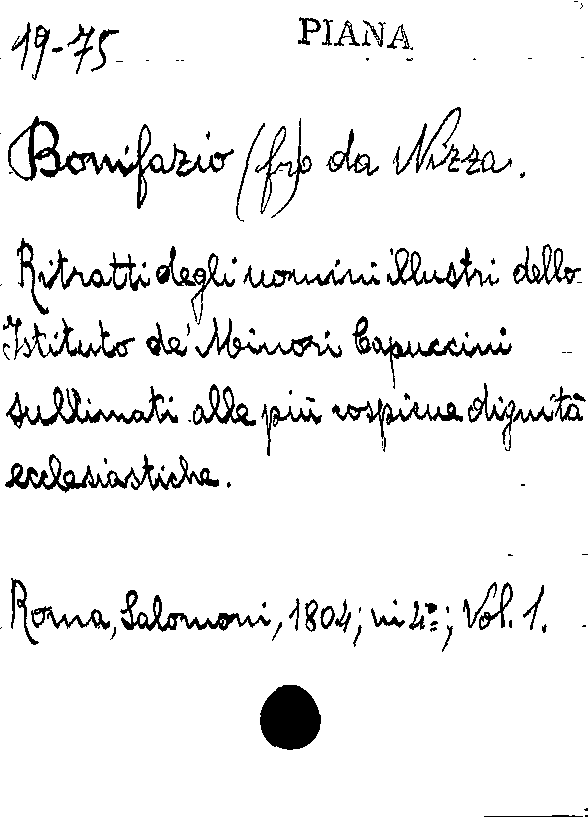 19-75
PIANA
Bonifazio (fr) da Nizza.
Ritratti degli uomini illustri dello
Istituto de' Minori Capuccini
sullimati alle più cospicue dignità
ecclesiastiche.
Roma, Salomoni, 1804; in 4º; Vol. 1.